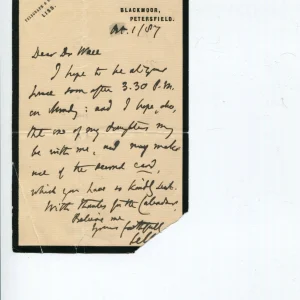 BLACKMOOR,
PETERSFIELD.
LISS.
Oct. 1/87
Dear Dr Wace
I hope to be at your
house soon after 3.30 P.M.
on Monday: and I hope, also,
that one of my daughters may
be with me, and may make
use of the second card,
which you have so kindly sent.
With thanks for the Calendar
Believe me
Yours faithfully
Selb